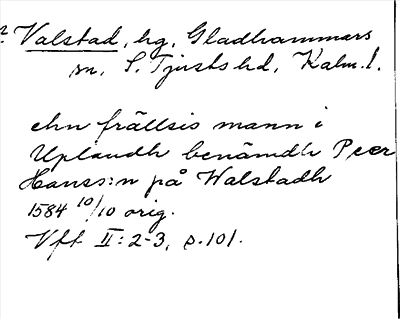 ? Valstad, hg, Gladhammars
sn, S. Tjusts hd, Kalm. l.
ehn frällsis mann i
Uplandh benämdh Peer
Hanss:n på Walstadh
1584 10/10 orig.
Vft II: 2-3, s. 101.